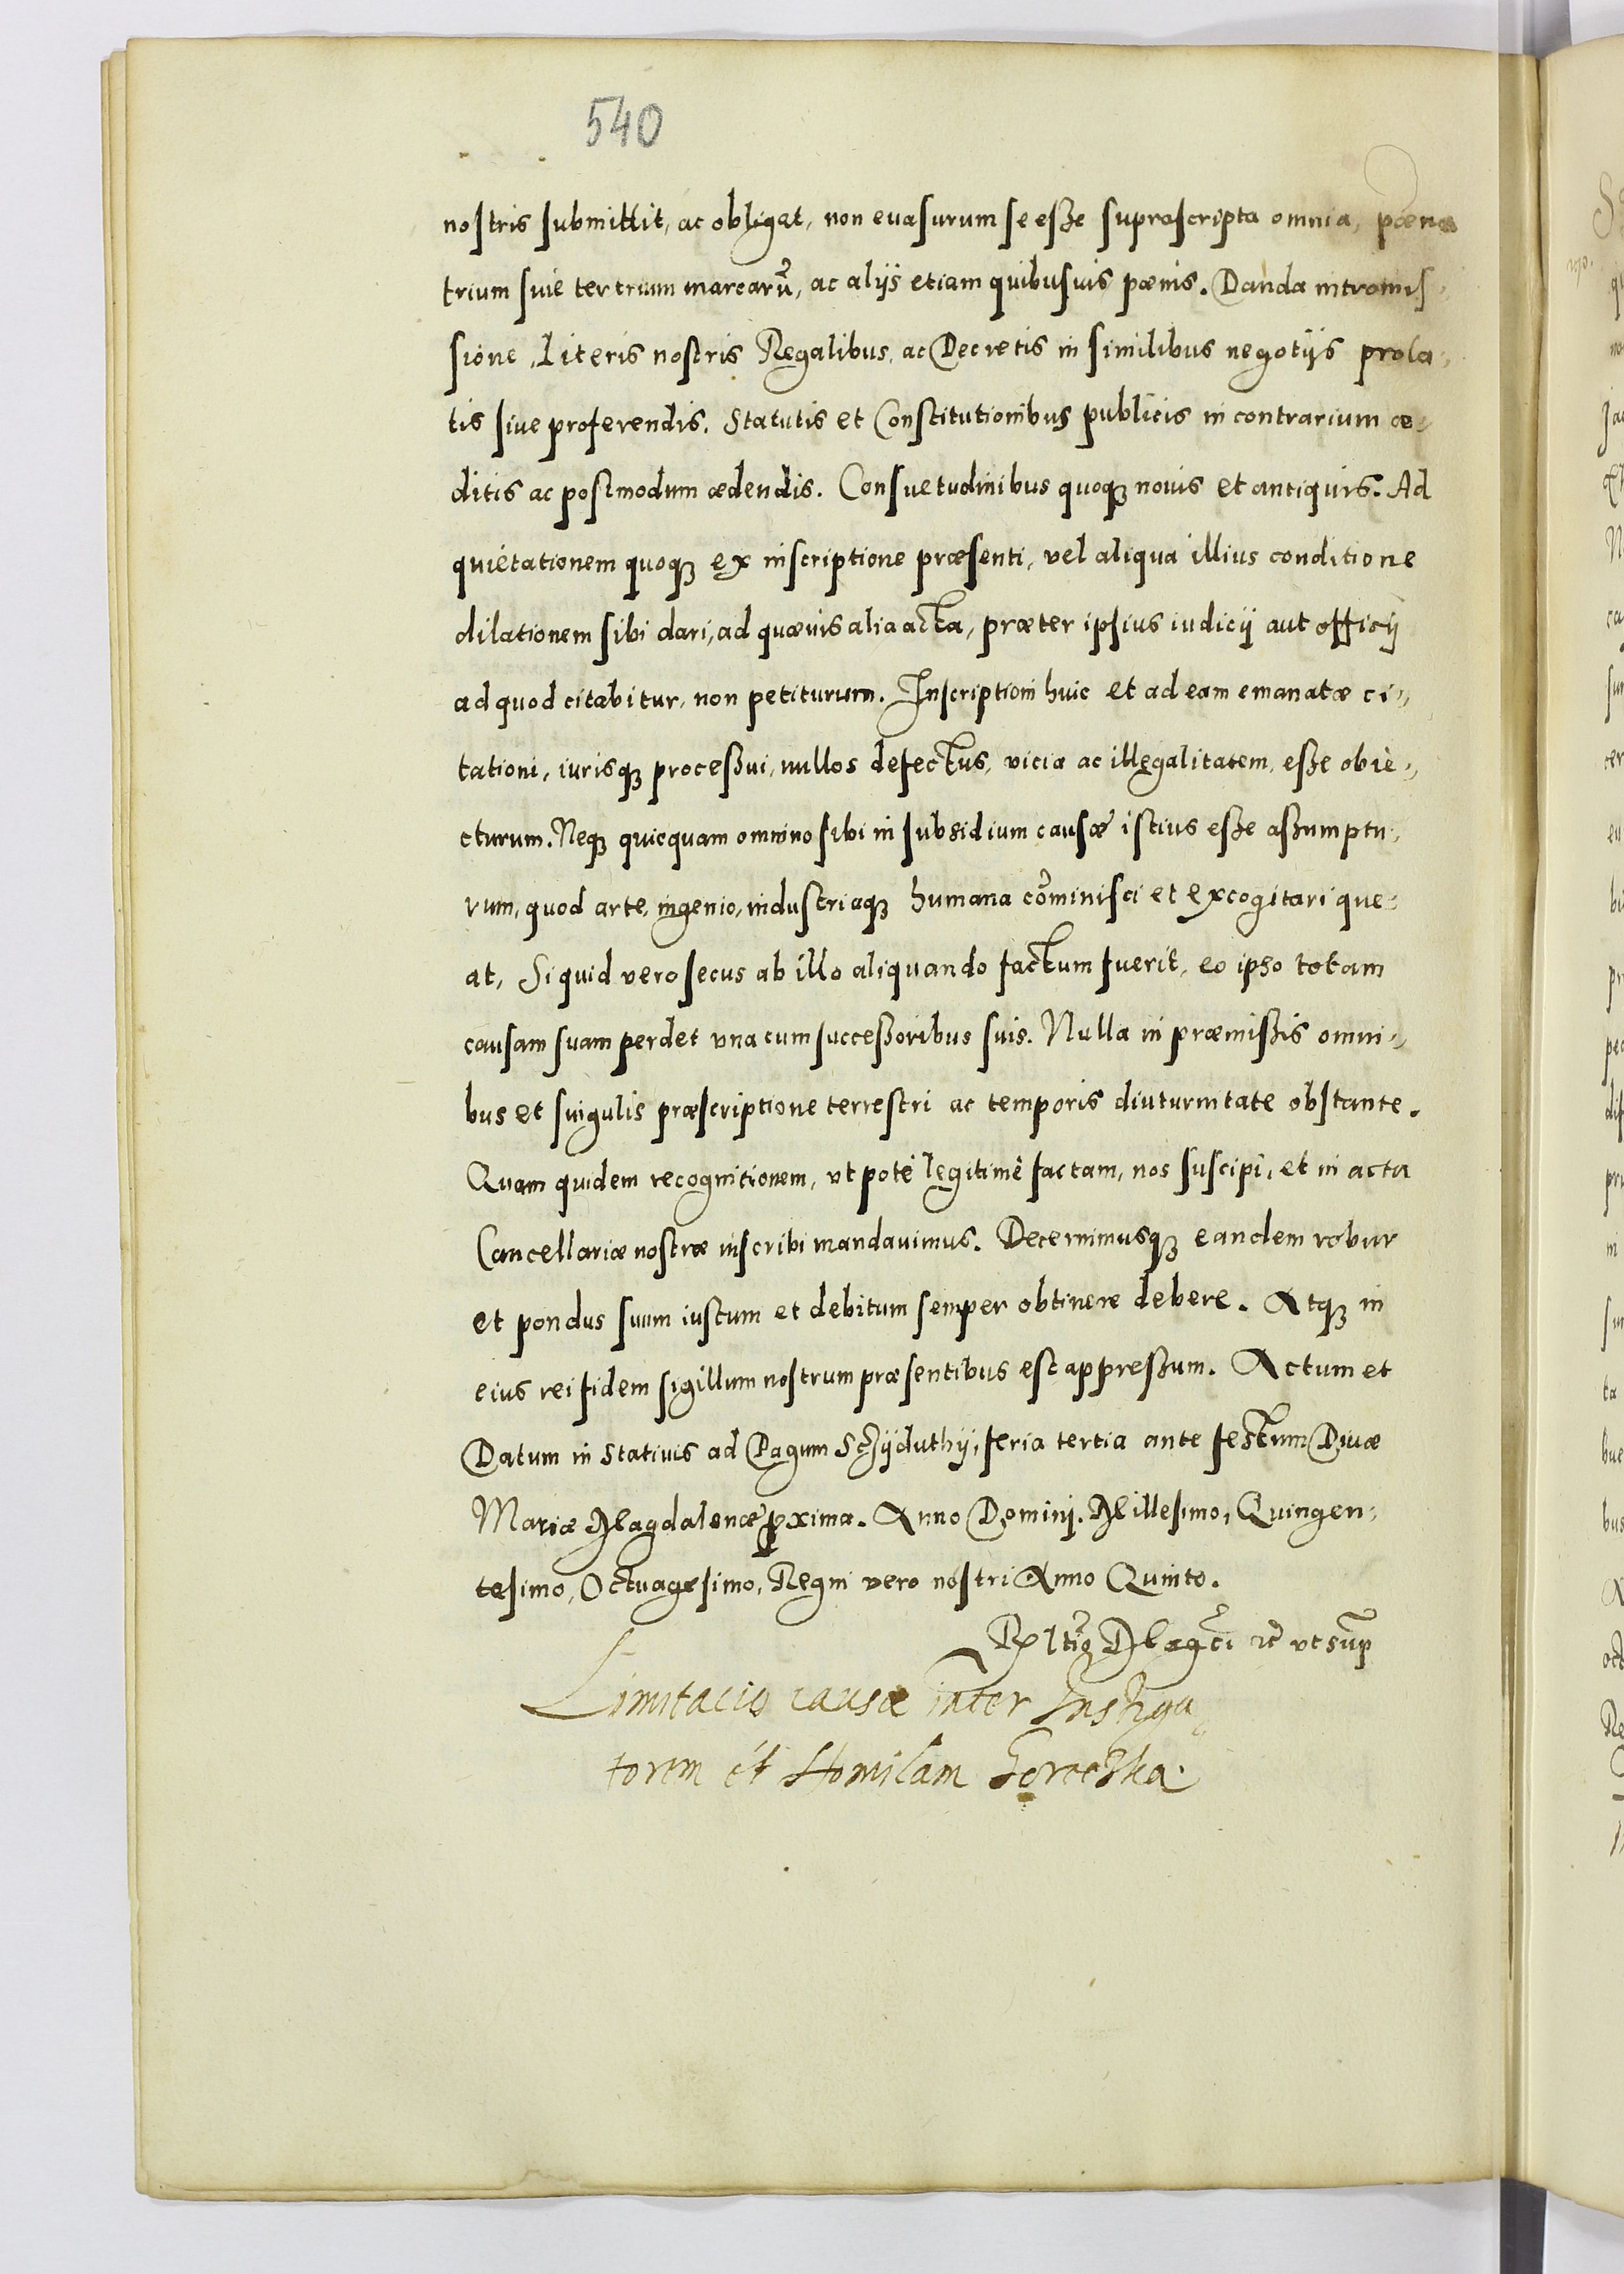 540
nostris submittit, ac obligat, non euasurum se esse suprascripta omnia, pœna
trium siue ter trium marcarũ, ac alijs etiam quibusuis pœnis. Danda intromis-
sione, Literis nostris Regalibus, ac Decretis in similibus negotijs prola-
tis siue proferendis. Statutis et Constitutionibus publicis in contrarium æ-
ditis ac postmodum ædendis. Consuetudinibus quoqȝ nouis et antiquis. Ad
quietationem quoqȝ ex inscriptione præsenti, vel aliqua illius conditione
dilationem sibi dari, ad quæuis alia acta, præter ipsius iudicij aut officij
ad quod citabitur, non petiturum. Inscriptioni huic et ad eam emanatæ ci-
tationi, iurisqȝ processui, nullos defectus, vicia ac illegalitatem, esse obie-
cturum. Neqȝ quicquam omnino sibi in subsidium causæ istius esse assumptu-
rum, quod arte, ingenio, industriaqȝ humana cõminisci et excogitari que-
at, Si quid vero secus ab illo aliquando factum fuerit, eo ipso totam
causam suam perdet vna cum successoribus suis. Nulla in præmissis omni-
bus et singulis præscriptione terrestri ac temporis diuturnitate obstante.
Quam quidem recognitionem, vt potè legitimè factam, nos suscipi, et in acta
Cancellariæ nostræ inscribi mandauimus. Decernimusqȝ eandem robur
et pondus suum iustum et debitum semper obtinere debere. Atqȝ in
eius rei fidem sigillum nostrum præsentibus est appressum. Actum et
Datum in Statiuis ad Pagum Schÿduthÿ, feria tertia ante festum Diuæ
Mariæ Magdalenæ pxima. Anno Domini. Millesimo, Quingen-
tesimo, Octuagesimo, Regni vero nostri Anno Quinto.
Rltio Magci etc vt sup
Limitacio causæ inter Instiga
torem et Homilam